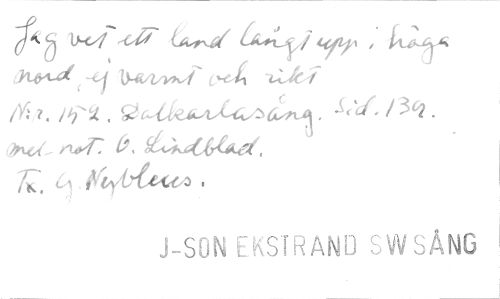 Jag vet ett land långt upp i höga
nord, ej varmt och rikt
N:r. 152. Dalkarlasång. Sid. 139.
mel. not. O. Lindblad.
Tx. G. Nyblæus.
J-SON EKSTRAND SW SÅNG